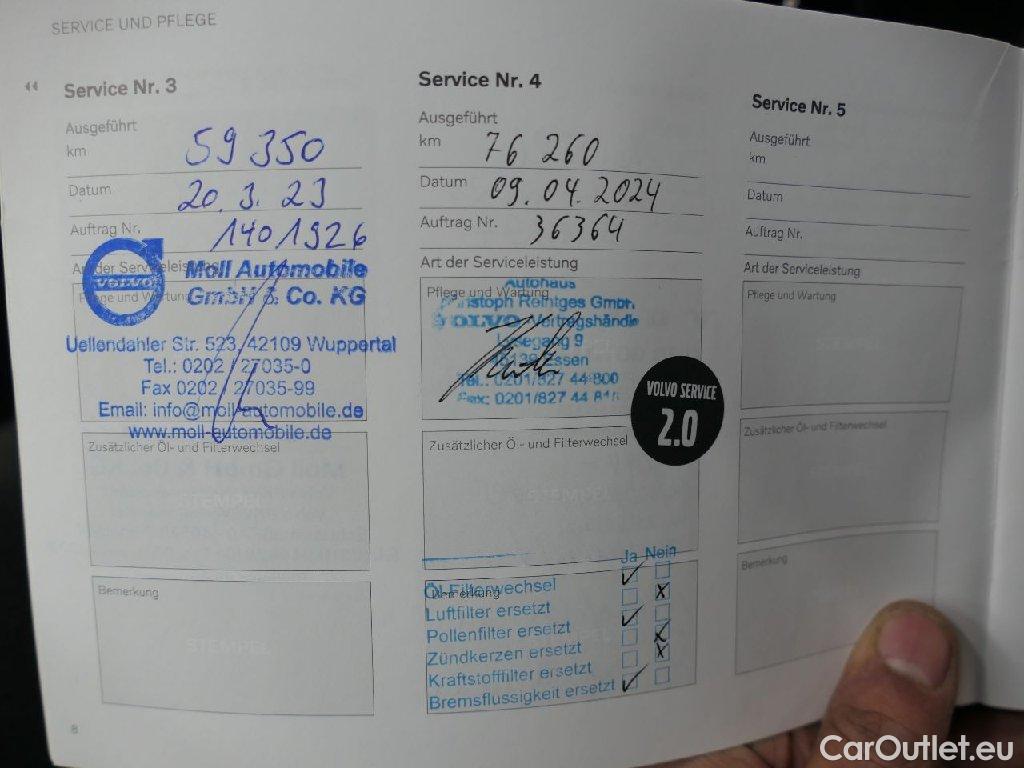 SERVICE UND PFLEGE
Service Nr. 3
Ausgeführt
km 59 350
Datum 20.3.23
Auftrag Nr. 1401926
Art der Serviceleistung
Pflege und Wartung
VOLVO
Moll Automobile
GmbH & Co. KG
Uellendahler Str. 523, 42109 Wuppertal
Tel.: 0202 / 27035-0
Fax 0202 / 27035-99
Email: info@moll-automobile.de
www.moll-automobile.de
Zusätzlicher Öl- und Filterwechsel
STEMPEL
Bemerkung
STEMPEL
8
Service Nr. 4
Ausgeführt
km 76 260
Datum 09.04.2024
Auftrag Nr. 36364
Art der Serviceleistung
Pflege und Wartung
Autohaus
GmbH
VOLVO Vertragshändle
9
Essen
Tel.: 0201/827 44 800
Fax: 0201/827 44
VOLVO SERVICE
2.0
Zusätzlicher Öl- und Filterwechsel
STEMPEL
Bemerkung
Ja Nein
Öl-Filterwechsel
Luftfilter ersetzt
Pollenfilter ersetzt
Zündkerzen ersetzt
Kraftstofffilter ersetzt
Bremsflussigkeit ersetzt
Service Nr. 5
Ausgeführt
km
Datum
Auftrag Nr.
Art der Serviceleistung
Pflege und Wartung
Zusätzlicher Öl- und Filterwechsel
Bemerkung
CarOutlet.eu